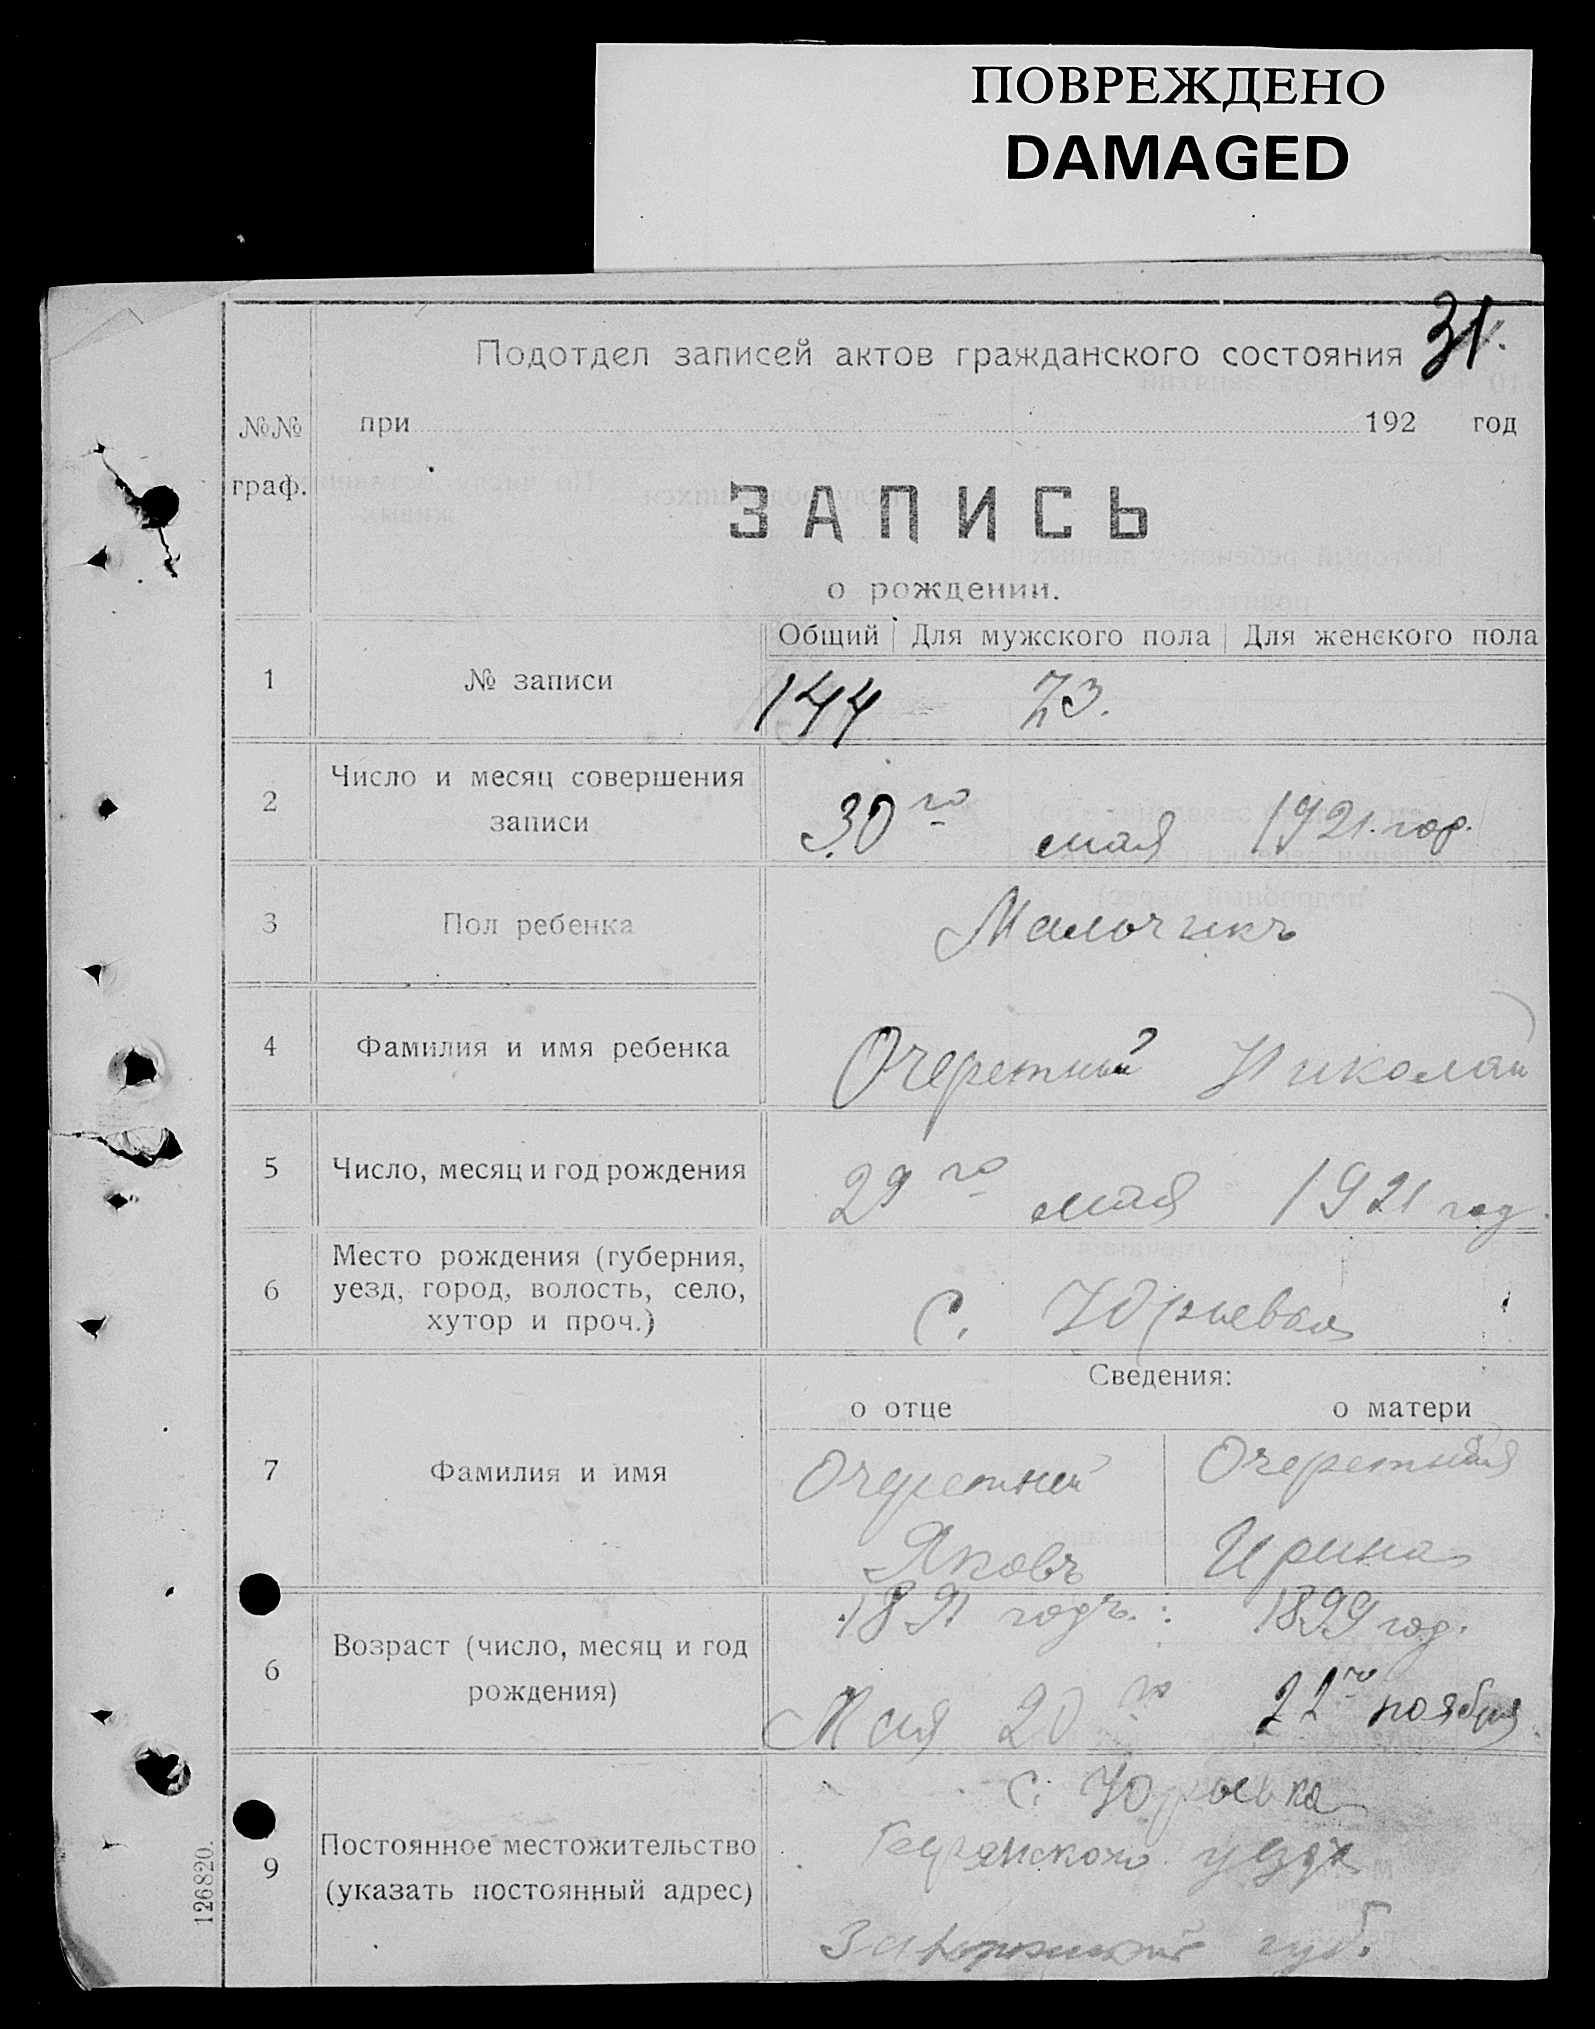 ПОВРЕЖДЕНО
DAMAGED
Подотдел записей актов гражданского состояния 31.
№№ граф.
при 192 год
ЗАПИСЬ
о рождении.
Общий Для мужского пола Для женского пола
1 № записи 144 73.
2 Число и месяц совершения записи 30го мая 1921. год.
3 Пол ребенка Мальчикъ
4 Фамилия и имя ребенка Очеретний Николай
5 Число, месяц и год рождения 29го мая 1921 год.
6 Место рождения (губерния,
уезд, город, волость, село,
хутор и проч.)
с. Юрьевка
Сведения:
о отце о матери
7 Фамилия и имя
Очеретний Очеретняя
Яковъ Ирина
6 Возраст (число, месяц и год
рождения)
1891 годъ. 1899 год.
Мая 20го 22го ноября
9 Постоянное местожительство
(указать постоянный адрес)
с. Юрьевка
уезда
губ.
126820.